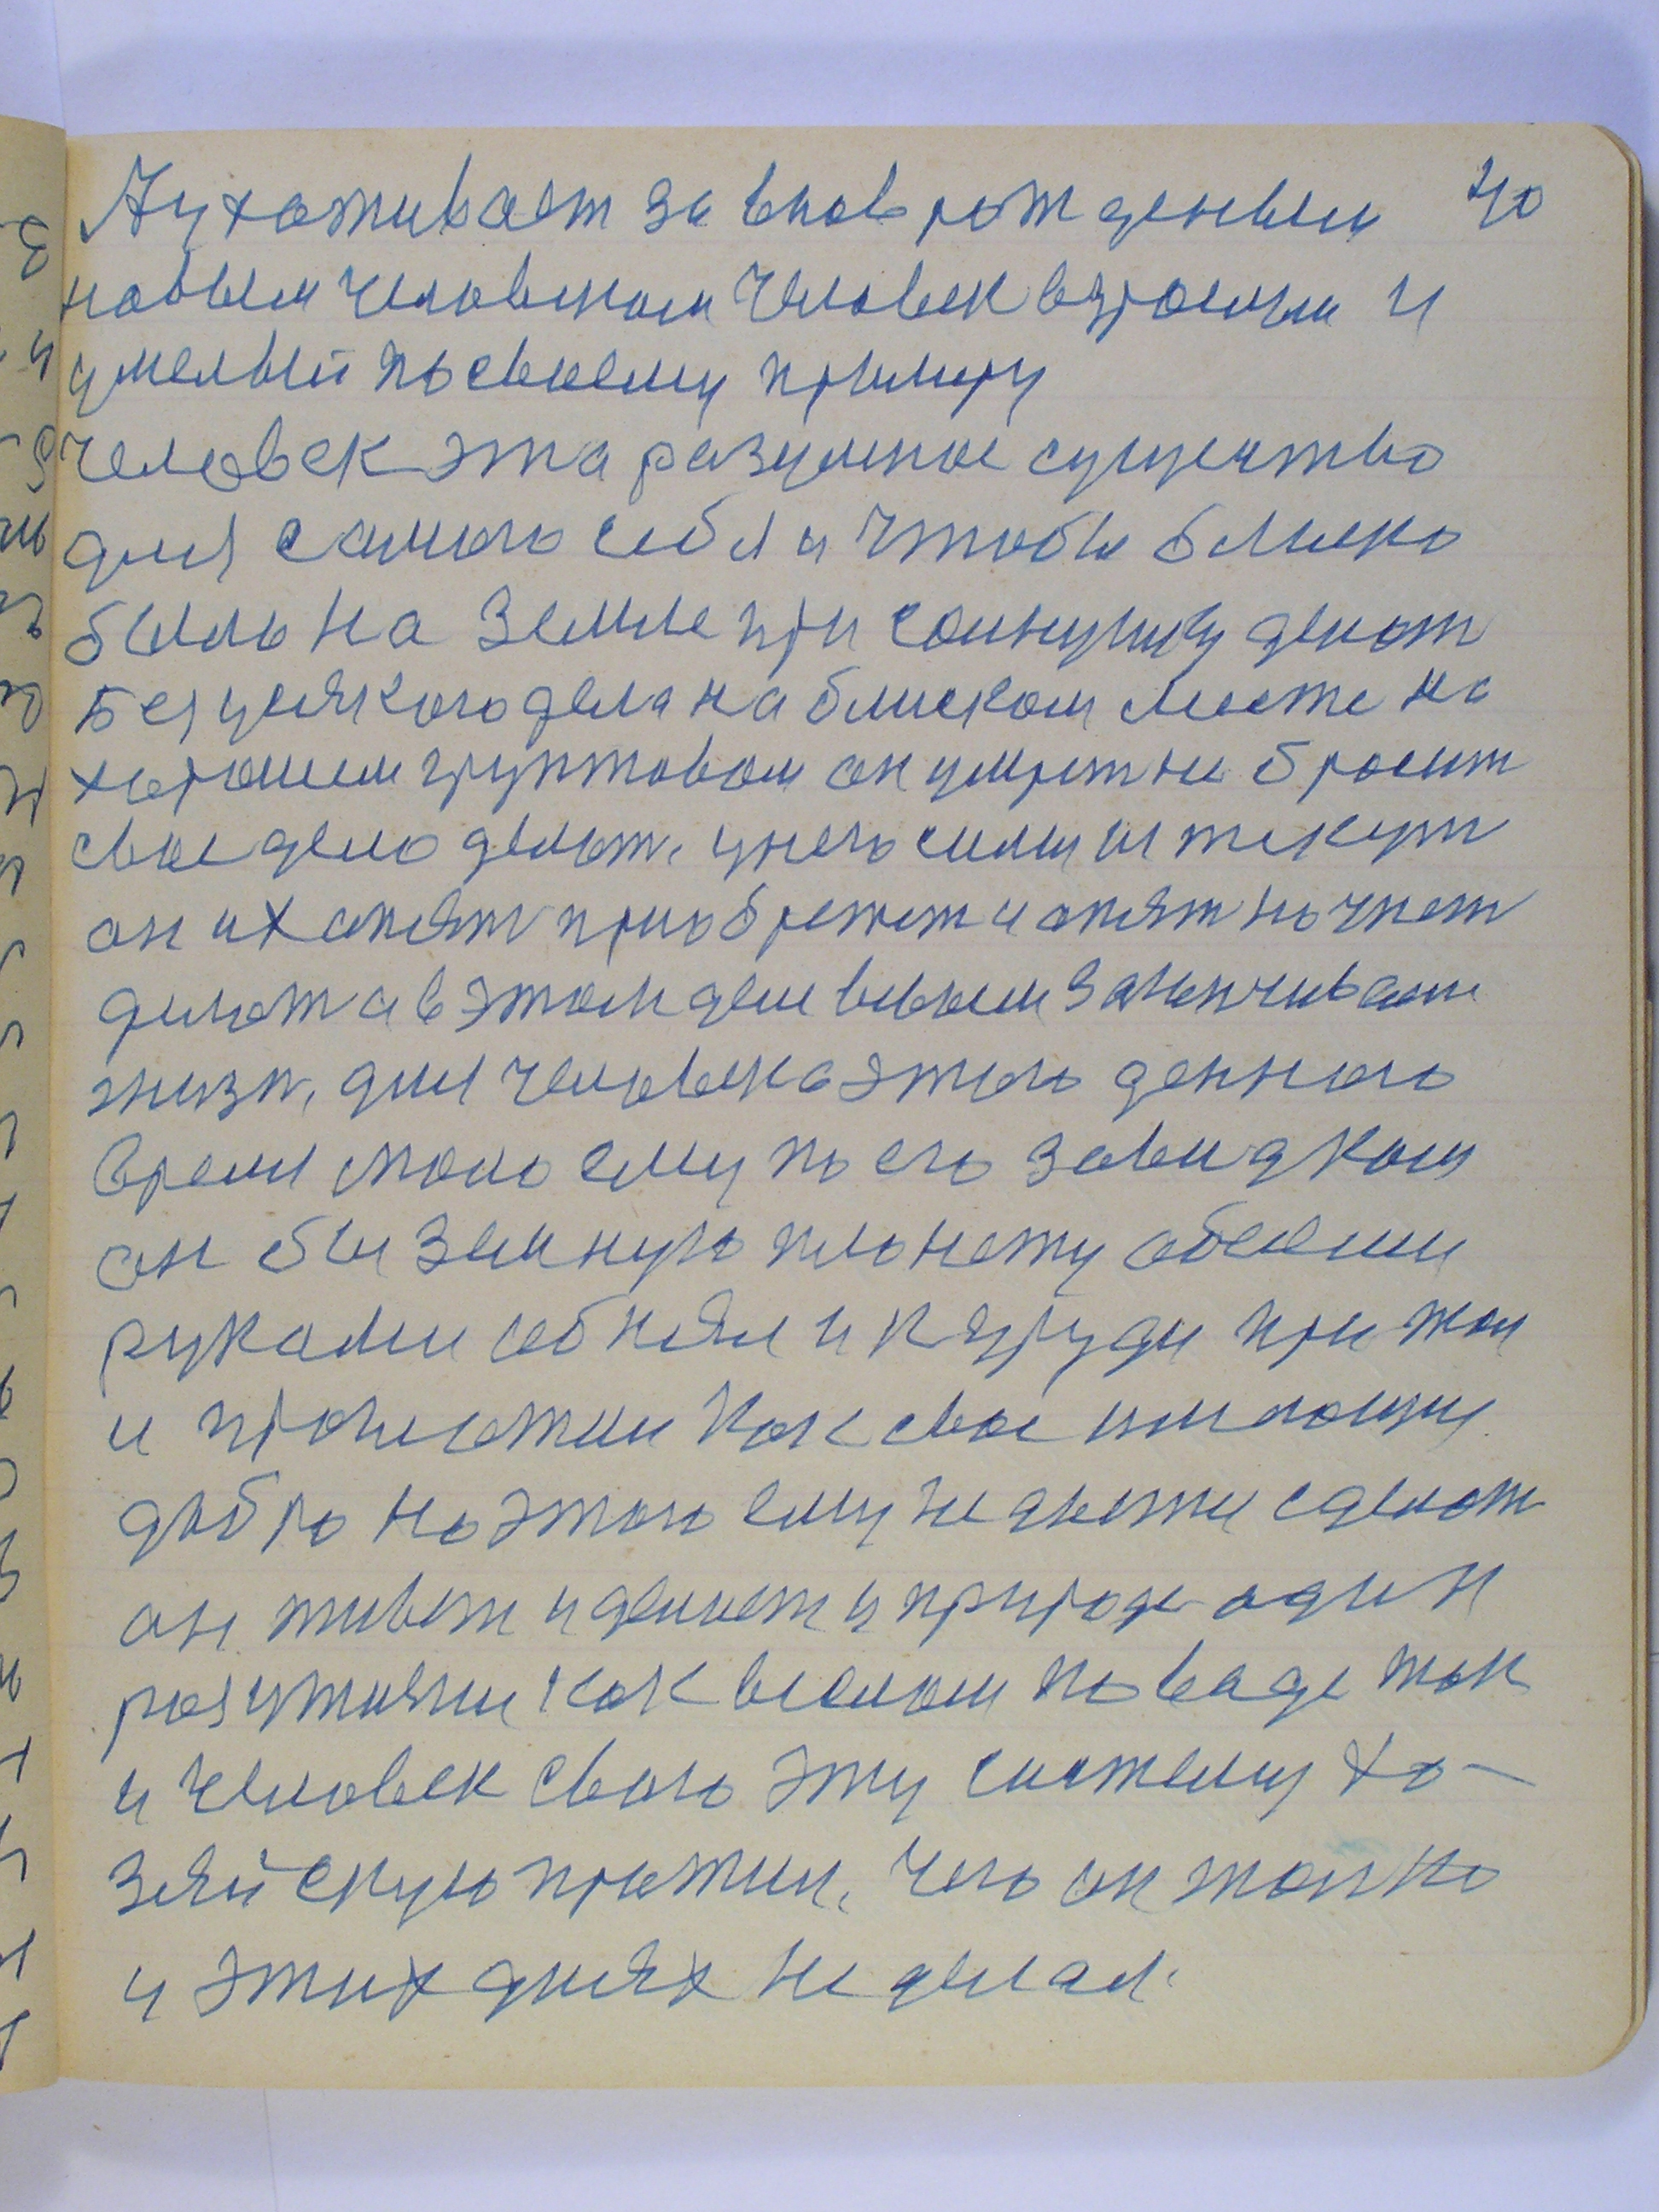 А ухаживает за внов рожденым 40
новым человеком человек взрослый и
умелый по своему примеру
Человек эта разумное существо
для самого себя и чтобы близко
было на земле при солнушку делат
Без усякого дела на блиском месте на
хорошем групповом он умрет не бросит
свое дело делат, у него силы истекут
он их опят приобретет и опят начнет
делат а в этом деле заканчивает
жизн, для человека этого денного
время мало ему по его завидкам
он бы земную планету обеими
руками обнял и к груди прижал
и проглотил как свое
добро но этого ему не дается сделат
он живет и делает у природе один
как веслом по ваде так
и человек свою эту систему хо-
зяйскую прожил, чего он толко
у этих днях не делал.